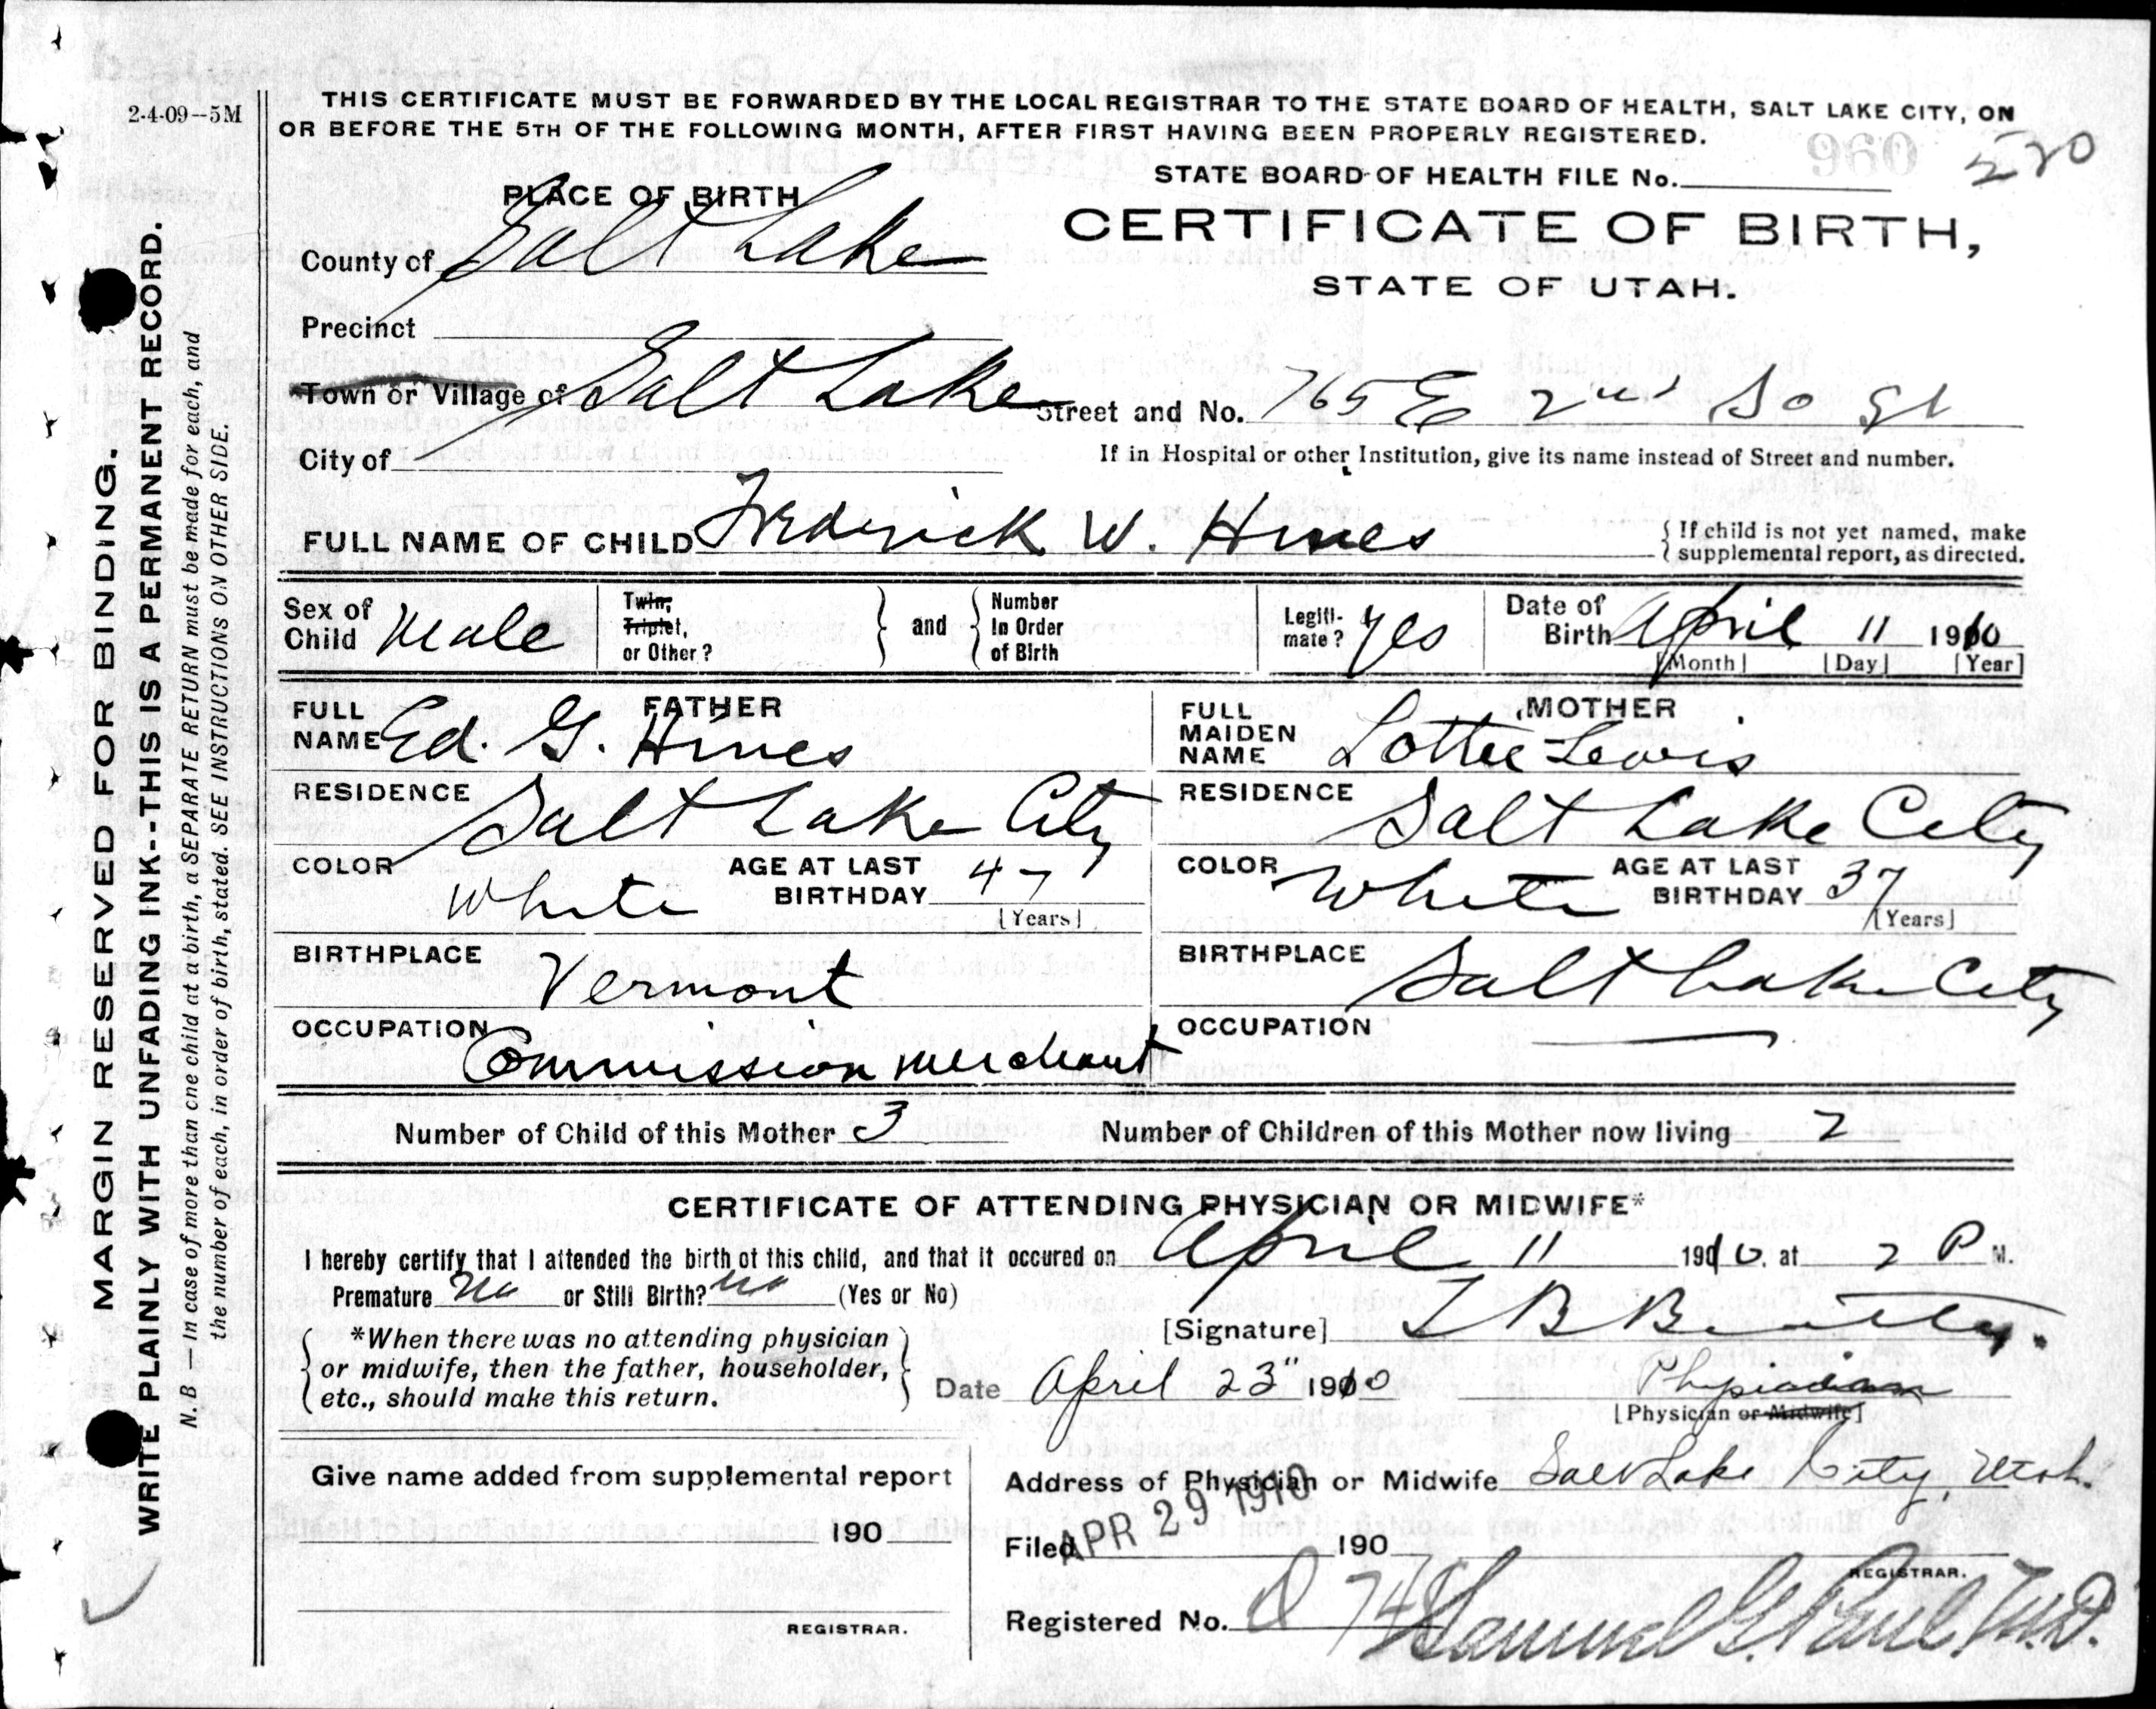 2-4-09--5M
THIS CERTIFICATE MUST BE FORWARDED BY THE LOCAL REGISTRAR TO THE STATE BOARD OF HEALTH, SALT LAKE CITY, ON
OR BEFORE THE 5TH OF THE FOLLOWING MONTH, AFTER FIRST HAVING BEEN PROPERLY REGISTERED.
960
STATE BOARD OF HEALTH FILE No. 520
PLACE OF BIRTH
CERTIFICATE OF BIRTH,
STATE OF UTAH.
County of Salt Lake
Precinct
Town or Village of Salt Lake Street and No. 765 E 2nd So St
City of
If in Hospital or other Institution, give its name instead of Street and number.
FULL NAME OF CHILD Frederick W. Hines
{ If child is not yet named, make
supplemental report, as directed.
Sex of Child Male
Twin, Triplet, or Other? } and { Number In Order of Birth
Legiti-mate? Yes
Date of Birth April 11 1910
[Month] [Day] [Year]
FATHER
FULL NAME Ed. G. Hines
RESIDENCE Salt Lake City
COLOR White AGE AT LAST BIRTHDAY 47
[Years]
BIRTHPLACE Vermont
OCCUPATION Commission merchant
MOTHER
FULL MAIDEN NAME Lottie Lewis
RESIDENCE Salt Lake City
COLOR White AGE AT LAST BIRTHDAY 37
[Years]
BIRTHPLACE Salt Lake City
OCCUPATION —
Number of Child of this Mother 3 Number of Children of this Mother now living 2
CERTIFICATE OF ATTENDING PHYSICIAN OR MIDWIFE*
I hereby certify that I attended the birth of this child, and that it occured on April 11 1910. at 2 P M.
Premature No or Still Birth? No (Yes or No)
*When there was no attending physician
or midwife, then the father, householder,
etc., should make this return.
[Signature] T B Beatty.
Date April 23" 1910 Physician
[Physician or Midwife]
Give name added from supplemental report
190
REGISTRAR.
Address of Physician or Midwife Salt Lake City, Utah.
Filed APR 29 1910 190
REGISTRAR.
Registered No. Samuel G. Paul. M.D.
MARGIN RESERVED FOR BINDING.
WRITE PLAINLY WITH UNFADING INK--THIS IS A PERMANENT RECORD.
N. B — In case of more than one child at a birth, a SEPARATE RETURN must be made for each, and
the number of each, in order of birth, stated. SEE INSTRUCTIONS ON OTHER SIDE.